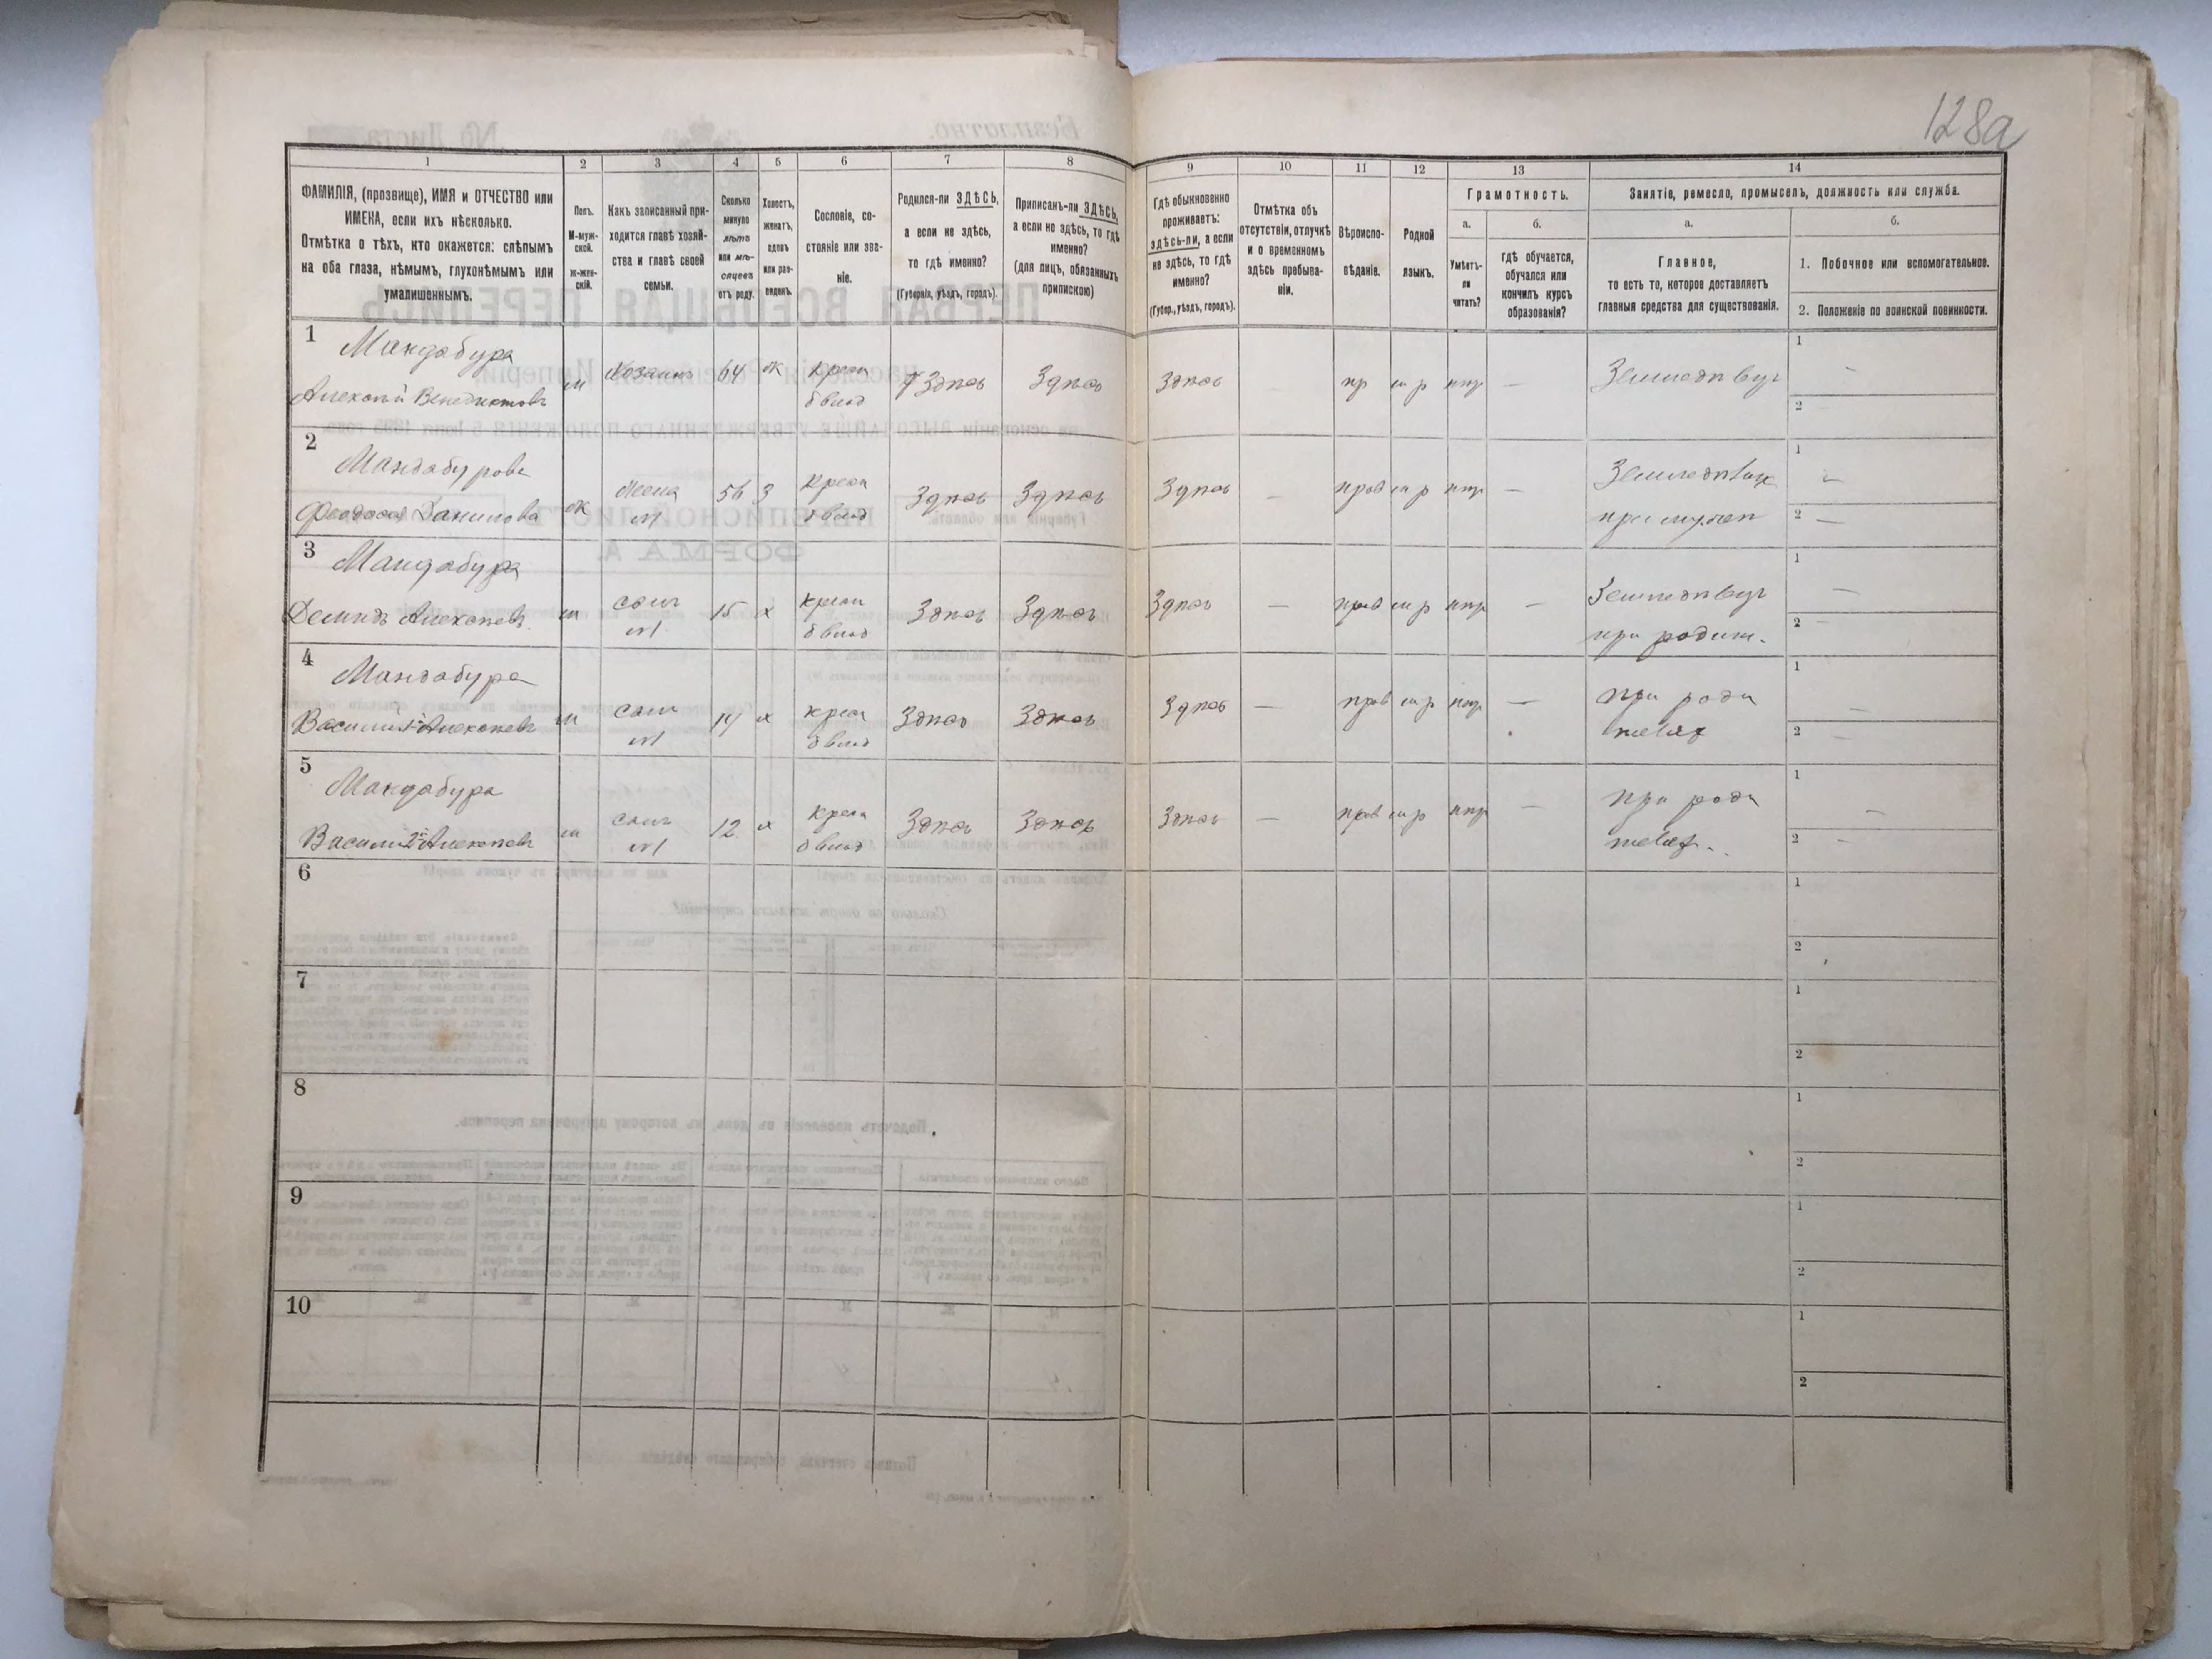 128а
1
2
3
4
5
6
7
8
9
10
11
12
13
14
ФАМИЛІЯ, (прозвище), ИМЯ и ОТЧЕСТВО или
ИМЕНА, если ихъ нѣсколько.
Отмѣтка о тѣхъ, кто окажется: слѣпымъ
на оба глаза, нѣмымъ, глухонѣмымъ или
умалишеннымъ.
Полъ.
М-муж-
ской.
ж-жен-
скій.
Какъ записанный при-
ходится главѣ хозяй-
ства и главѣ своей
семьи.
Сколько
минуло
лѣтъ
или мѣ-
сяцевъ
отъ роду.
Холостъ,
женатъ,
вдовъ
или раз-
веденъ.
Сословіе, со-
стояніе или зва-
ніе.
Родился-ли ЗДѢСЬ,
а если не здѣсь,
то гдѣ именно?
(Губернія, уѣздъ, городъ).
Приписанъ-ли ЗДѢСЬ,
а если не здѣсь, то гдѣ
именно?
(для лицъ, обязанныхъ
припискою)
Гдѣ обыкновенно
проживаетъ:
здѣсь-ли, а если
не здѣсь, то гдѣ
именно?
(Губер., уѣздъ, городъ).
Отмѣтка объ
отсутствіи, отлучкѣ
и о временномъ
здѣсь пребыва-
ніи.
Вѣроиспо-
вѣданіе.
Родной
языкъ.
Грамотность.
а.
б.
Умѣетъ-
ли
читать?
гдѣ обучается,
обучался или
кончилъ курсъ
образованія?
Занятіе, ремесло, промыселъ, должность или служба.
а.
б.
Главное,
то есть то, которое доставляетъ
главныя средства для существованія.
1. Побочное или вспомогательное.
2. Положеніе по воинской повинности.
1
Мандабура
Алексѣй Венедиктовъ
м
Хозяинъ
64
ж
крест
б влад
Здѣсь
Здѣсь
Здѣсь
—
пр
м р
нѣт
—
Земледѣлец
1
—
2
2
Мандабурова
Феодосія Данилова
ж
жена
м
56
З
крест
б влад
Здѣсь
Здѣсь
Здѣсь
—
прав
м р
нѣт
—
Земледѣлец
при мужѣ
1
—
2 —
3
Мандабура
Демидъ Алексѣевъ
м
сынъ
м
15
х
крест
б влад
Здѣсь
Здѣсь
Здѣсь
—
прав
м р
нѣт
—
Земледѣлец
при родит.
1
—
2 —
4
Мандабура
Василій 1й Алексѣевъ
м
сынъ
м
14
х
крест
б влад
Здѣсь
Здѣсь
Здѣсь
—
прав
м р
нѣт
—
при роди
телях
1
—
2 —
5
Мандабура
Василій 2й Алексѣевъ
м
сынъ
м
12
х
крест
б влад
Здѣсь
Здѣсь
Здѣсь
—
прав
м р
нѣт
—
при роди
телях
1
—
2 —
6
1
2
7
1
2
8
1
2
9
1
2
10
1
2